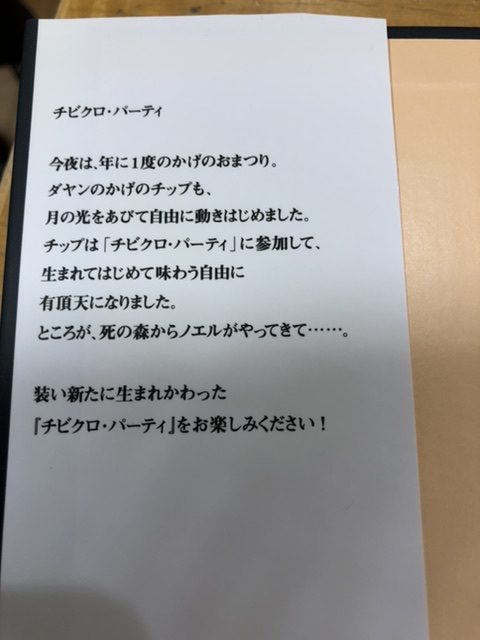 チビクロ・パーティ
今夜は、年に1度のかげのおまつり。
ダヤンのかげのチップも、
月の光をあびて自由に動きはじめました。
チップは「チビクロ・パーティ」に参加して、
生まれてはじめて味わう自由に
有頂天になりました。
ところが、死の森からノエルがやってきて……。
装い新たに生まれかわった
『チビクロ・パーティ』をお楽しみください！